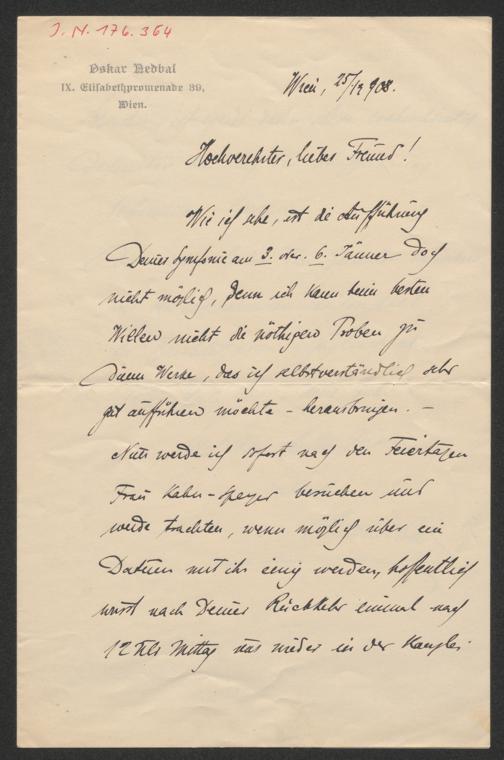 J. N. 176.364
Oskar Nedbal
IX. Elisabethpromenade 39,
Wien.
Wien, 25/12 908.
Hochverehrter, lieber Freund!
Wie ich sehe, ist die Aufführung
Deines Symfonie am 3. oder 6. Jänner doch
nicht möglich, denn ich kann beim besten
Willen nicht die nöthigen Proben zu
diesem Werke, das ich selbstverständlich sehr
gut aufführen möchte - herausbringen. -
Nun werde ich sofort nach den Feiertagen
Frau Kahn-Speyer besuchen und
werde trachten, wenn möglich über ein
Datum mit ihr einig werden, hoffentlich
wirst nach Deiner Rückkehr einmal nach
12 Uhr Mittag uns wieder in der Kanzlei